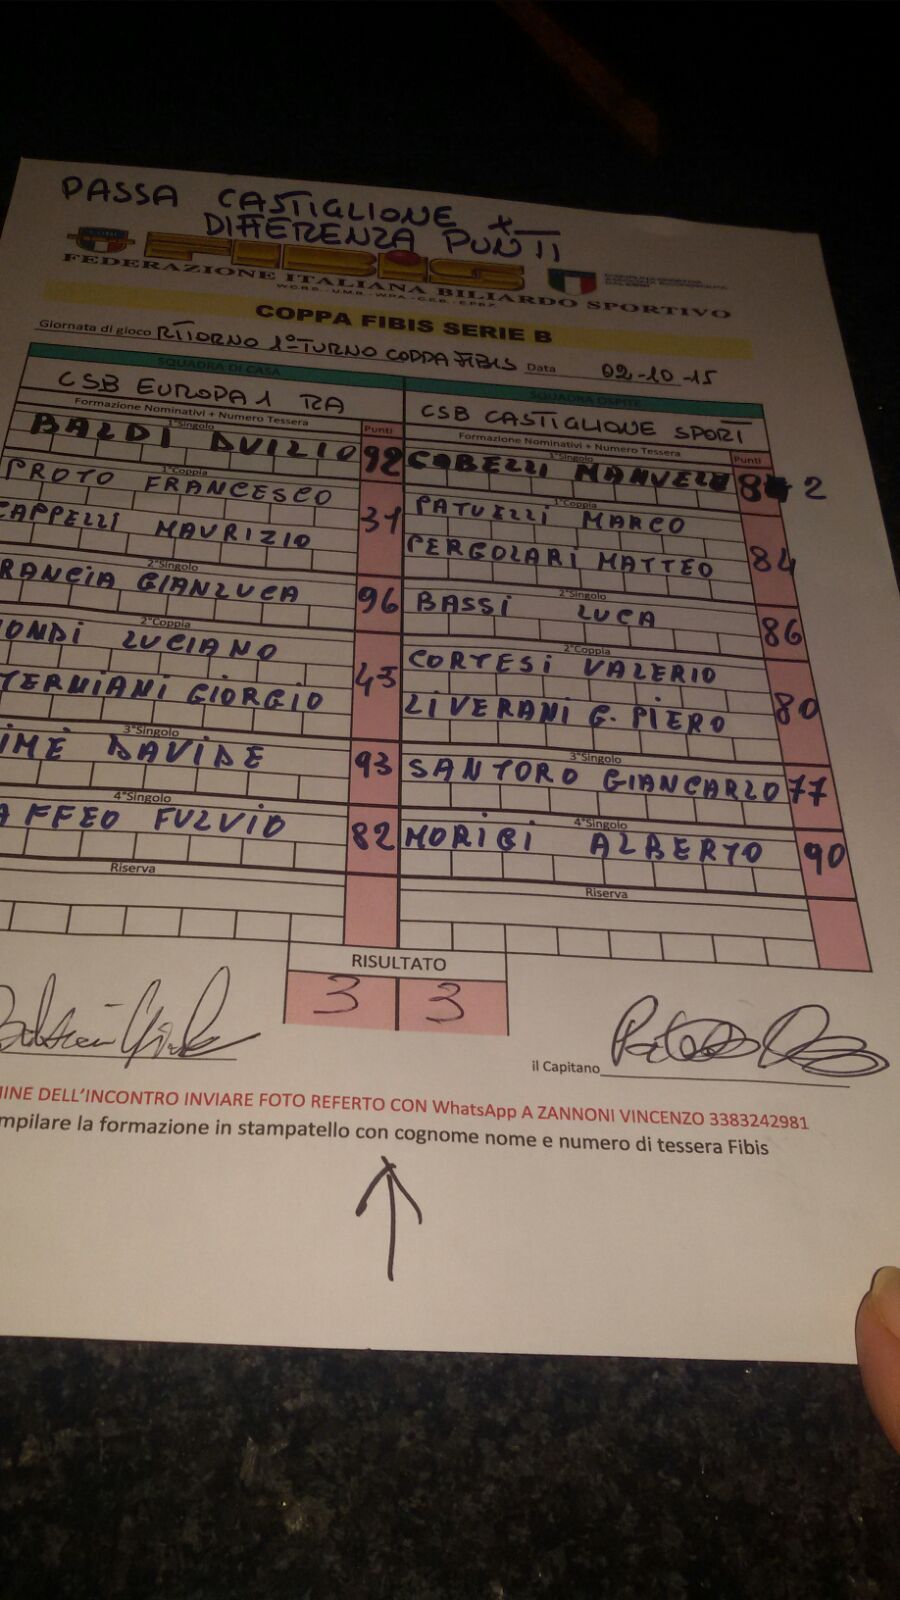 PASSA CASTIGLIONE X
DIFFERENZA PUNTI
FIBIS
FEDERAZIONE ITALIANA BILIARDO SPORTIVO
COPPA FIBIS SERIE B
Giornata di gioco RITORNO 1° TURNO COPPA FIBIS Data 02-10-15
SQUADRA DI CASA SQUADRA OSPITE
CSB EUROPA 1 RA CSB CASTIGLIONE SPORT
Formazione Nominativi + Numero Tessera Punti Formazione Nominativi + Numero Tessera Punti
1°Singolo 1°Singolo
BALDI DUILIO 92 82
1°Coppia 1°Coppia
PROTO FRANCESCO PATUELLI MARCO
CAPPELLI MAURIZIO 31 PERGOLARI MATTEO 84
2°Singolo 2°Singolo
RANCIA GIANLUCA 96 BASSI LUCA 86
2°Coppia 2°Coppia
ONDI LUCIANO CORTESI VALERIO
TERMIANI GIORGIO 43 LIVERANI G. PIERO 80
3°Singolo 3°Singolo
IMÈ DAVIDE 93 SANTORO GIANCARLO 77
4°Singolo 4°Singolo
AFFEO FULVIO 82 MORIGI ALBERTO 90
Riserva Riserva
RISULTATO
3 3
il Capitano
MINE DELL'INCONTRO INVIARE FOTO REFERTO CON WhatsApp A ZANNONI VINCENZO 3383242981
mpilare la formazione in stampatello con cognome nome e numero di tessera Fibis